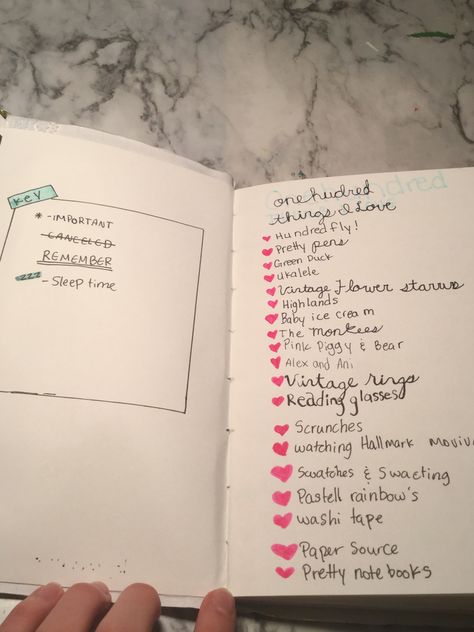 Key
* -IMPORTANT
-CANCELED
REMEMBER
zzz - Sleep time
One hudred
things I Love
Hundred fly!
Pretty pens
Green Duck
ukalele
Vintage Flower
Highlands
Baby ice cream
The Monkees
Pink Piggy & Bear
Alex and Ani
Vintage rings
Reading glasses
Scrunches
watching Hallmark
Swatches & Swacting
Pastell rainbow's
washi tape
Paper Source
Pretty notebooks